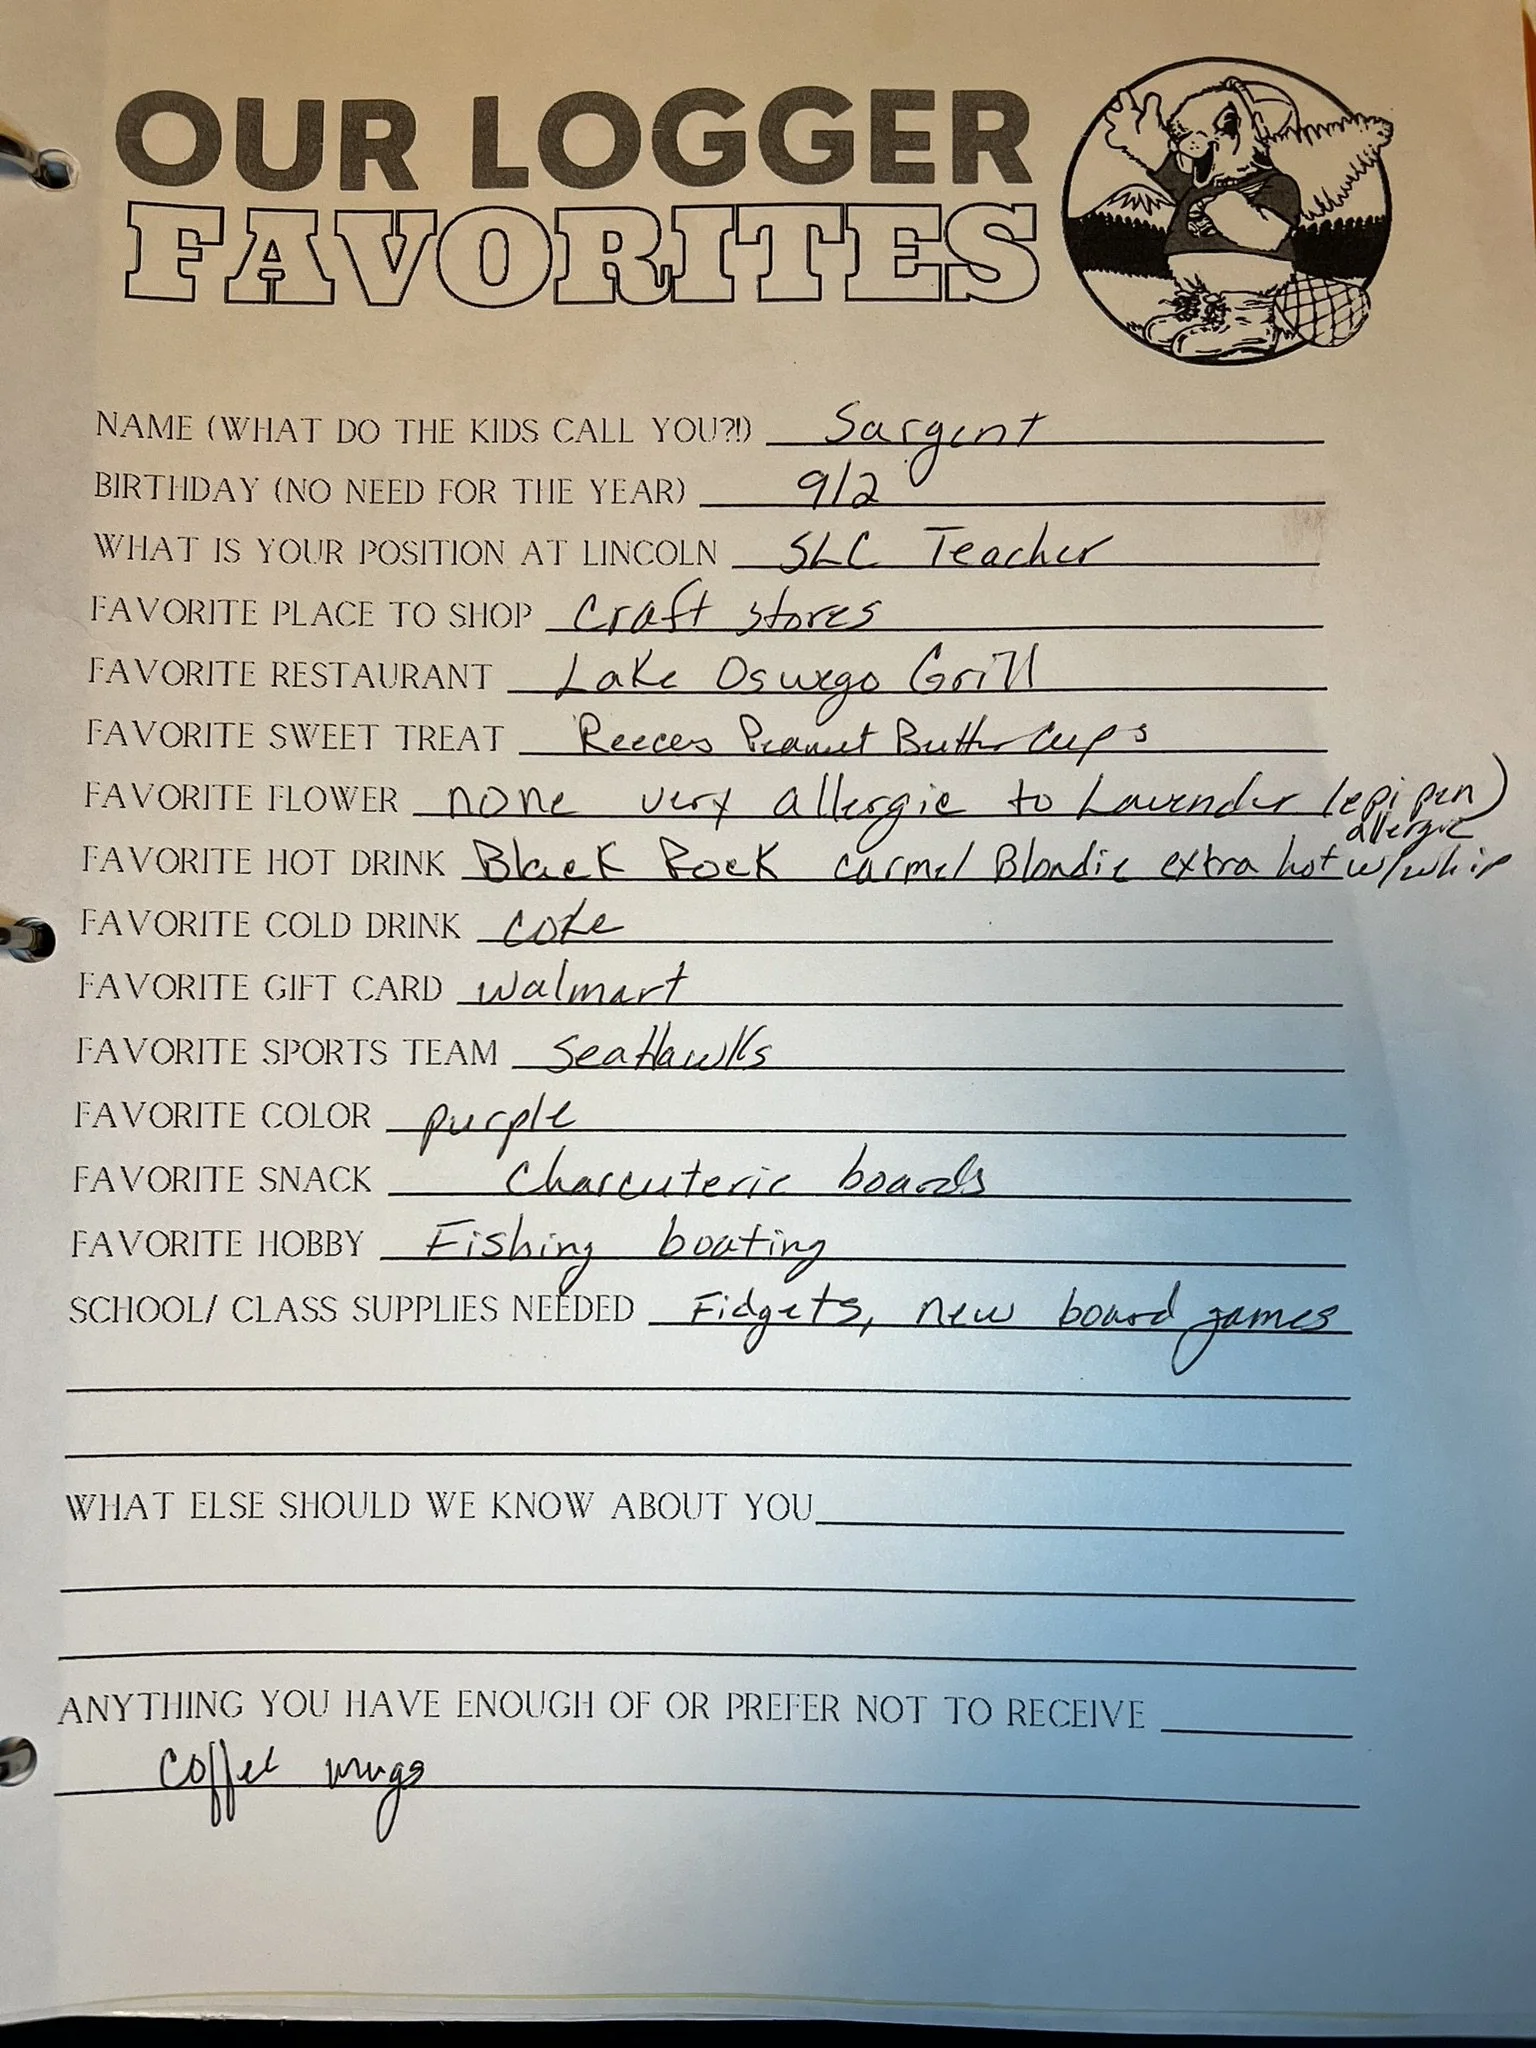 OUR LOGGER
FAVORITES
NAME (WHAT DO THE KIDS CALL YOU?!) Sargent
BIRTHDAY (NO NEED FOR THE YEAR) 9/2
WHAT IS YOUR POSITION AT LINCOLN SLC Teacher
FAVORITE PLACE TO SHOP Craft stores
FAVORITE RESTAURANT Lake Oswego Grill
FAVORITE SWEET TREAT Reeces Peanut Butter Cups
FAVORITE FLOWER none very allergic to Lavender (epi pen)
allergic
FAVORITE HOT DRINK Black Rock carmel Blondie extra hot w/whip
FAVORITE COLD DRINK coke
FAVORITE GIFT CARD Walmart
FAVORITE SPORTS TEAM SeaHawks
FAVORITE COLOR purple
FAVORITE SNACK Charcuterie boards
FAVORITE HOBBY Fishing boating
SCHOOL/ CLASS SUPPLIES NEEDED Fidgets, new board games
WHAT ELSE SHOULD WE KNOW ABOUT YOU
ANYTHING YOU HAVE ENOUGH OF OR PREFER NOT TO RECEIVE
coffee mugs